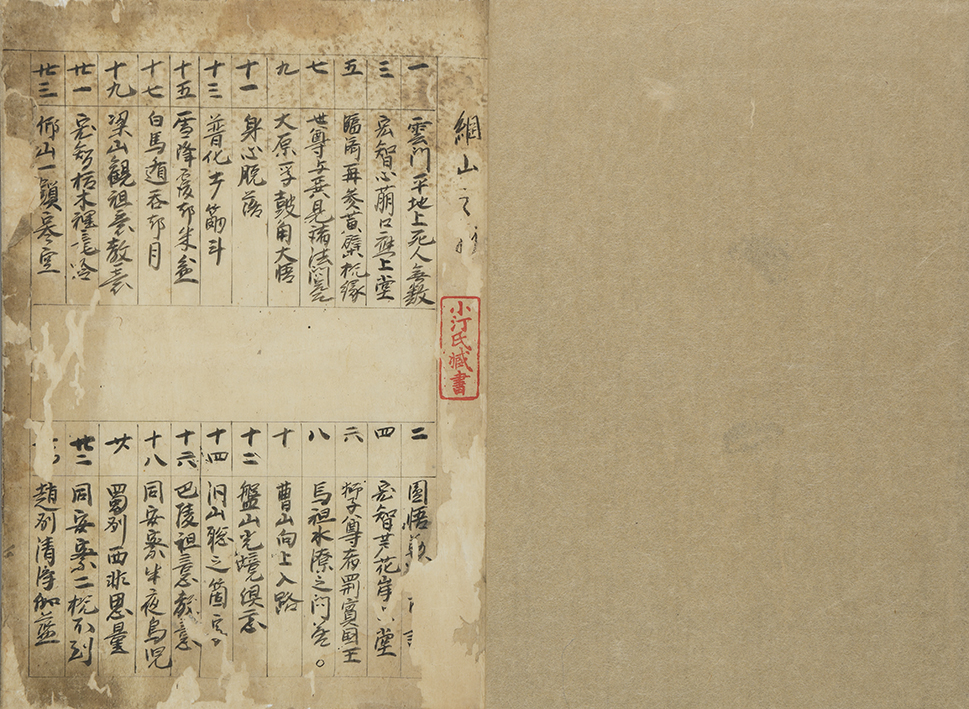 綱山
小汀氏藏書
一 雲門平地上死人無数
三 宏智心萠口應上堂
五 臨済再参黄檗机縁
七 世尊与異見諸法問答
九 大原孚鼓角大悟
十一 身心脱落
十三 普化打筋斗
十五 雪降却米盆
十七 白馬遁吞却月
十九 梁山観祖意教意
廿一 宏智枯木裡竜吟
廿三 仰山一顆寒空
二 圜悟
四 宏智芦花岸上堂
六 獅子尊者罽賓国王
八 馬祖水潦之問答。
十 曹山向上入路
十二 盤山光境倶忘
十四 山聡之箇
十六 巴陵祖意教意
十八 同安察半夜烏児
廿 蜀州西非思量
廿二 同安察二机不到
趙州清浄伽藍